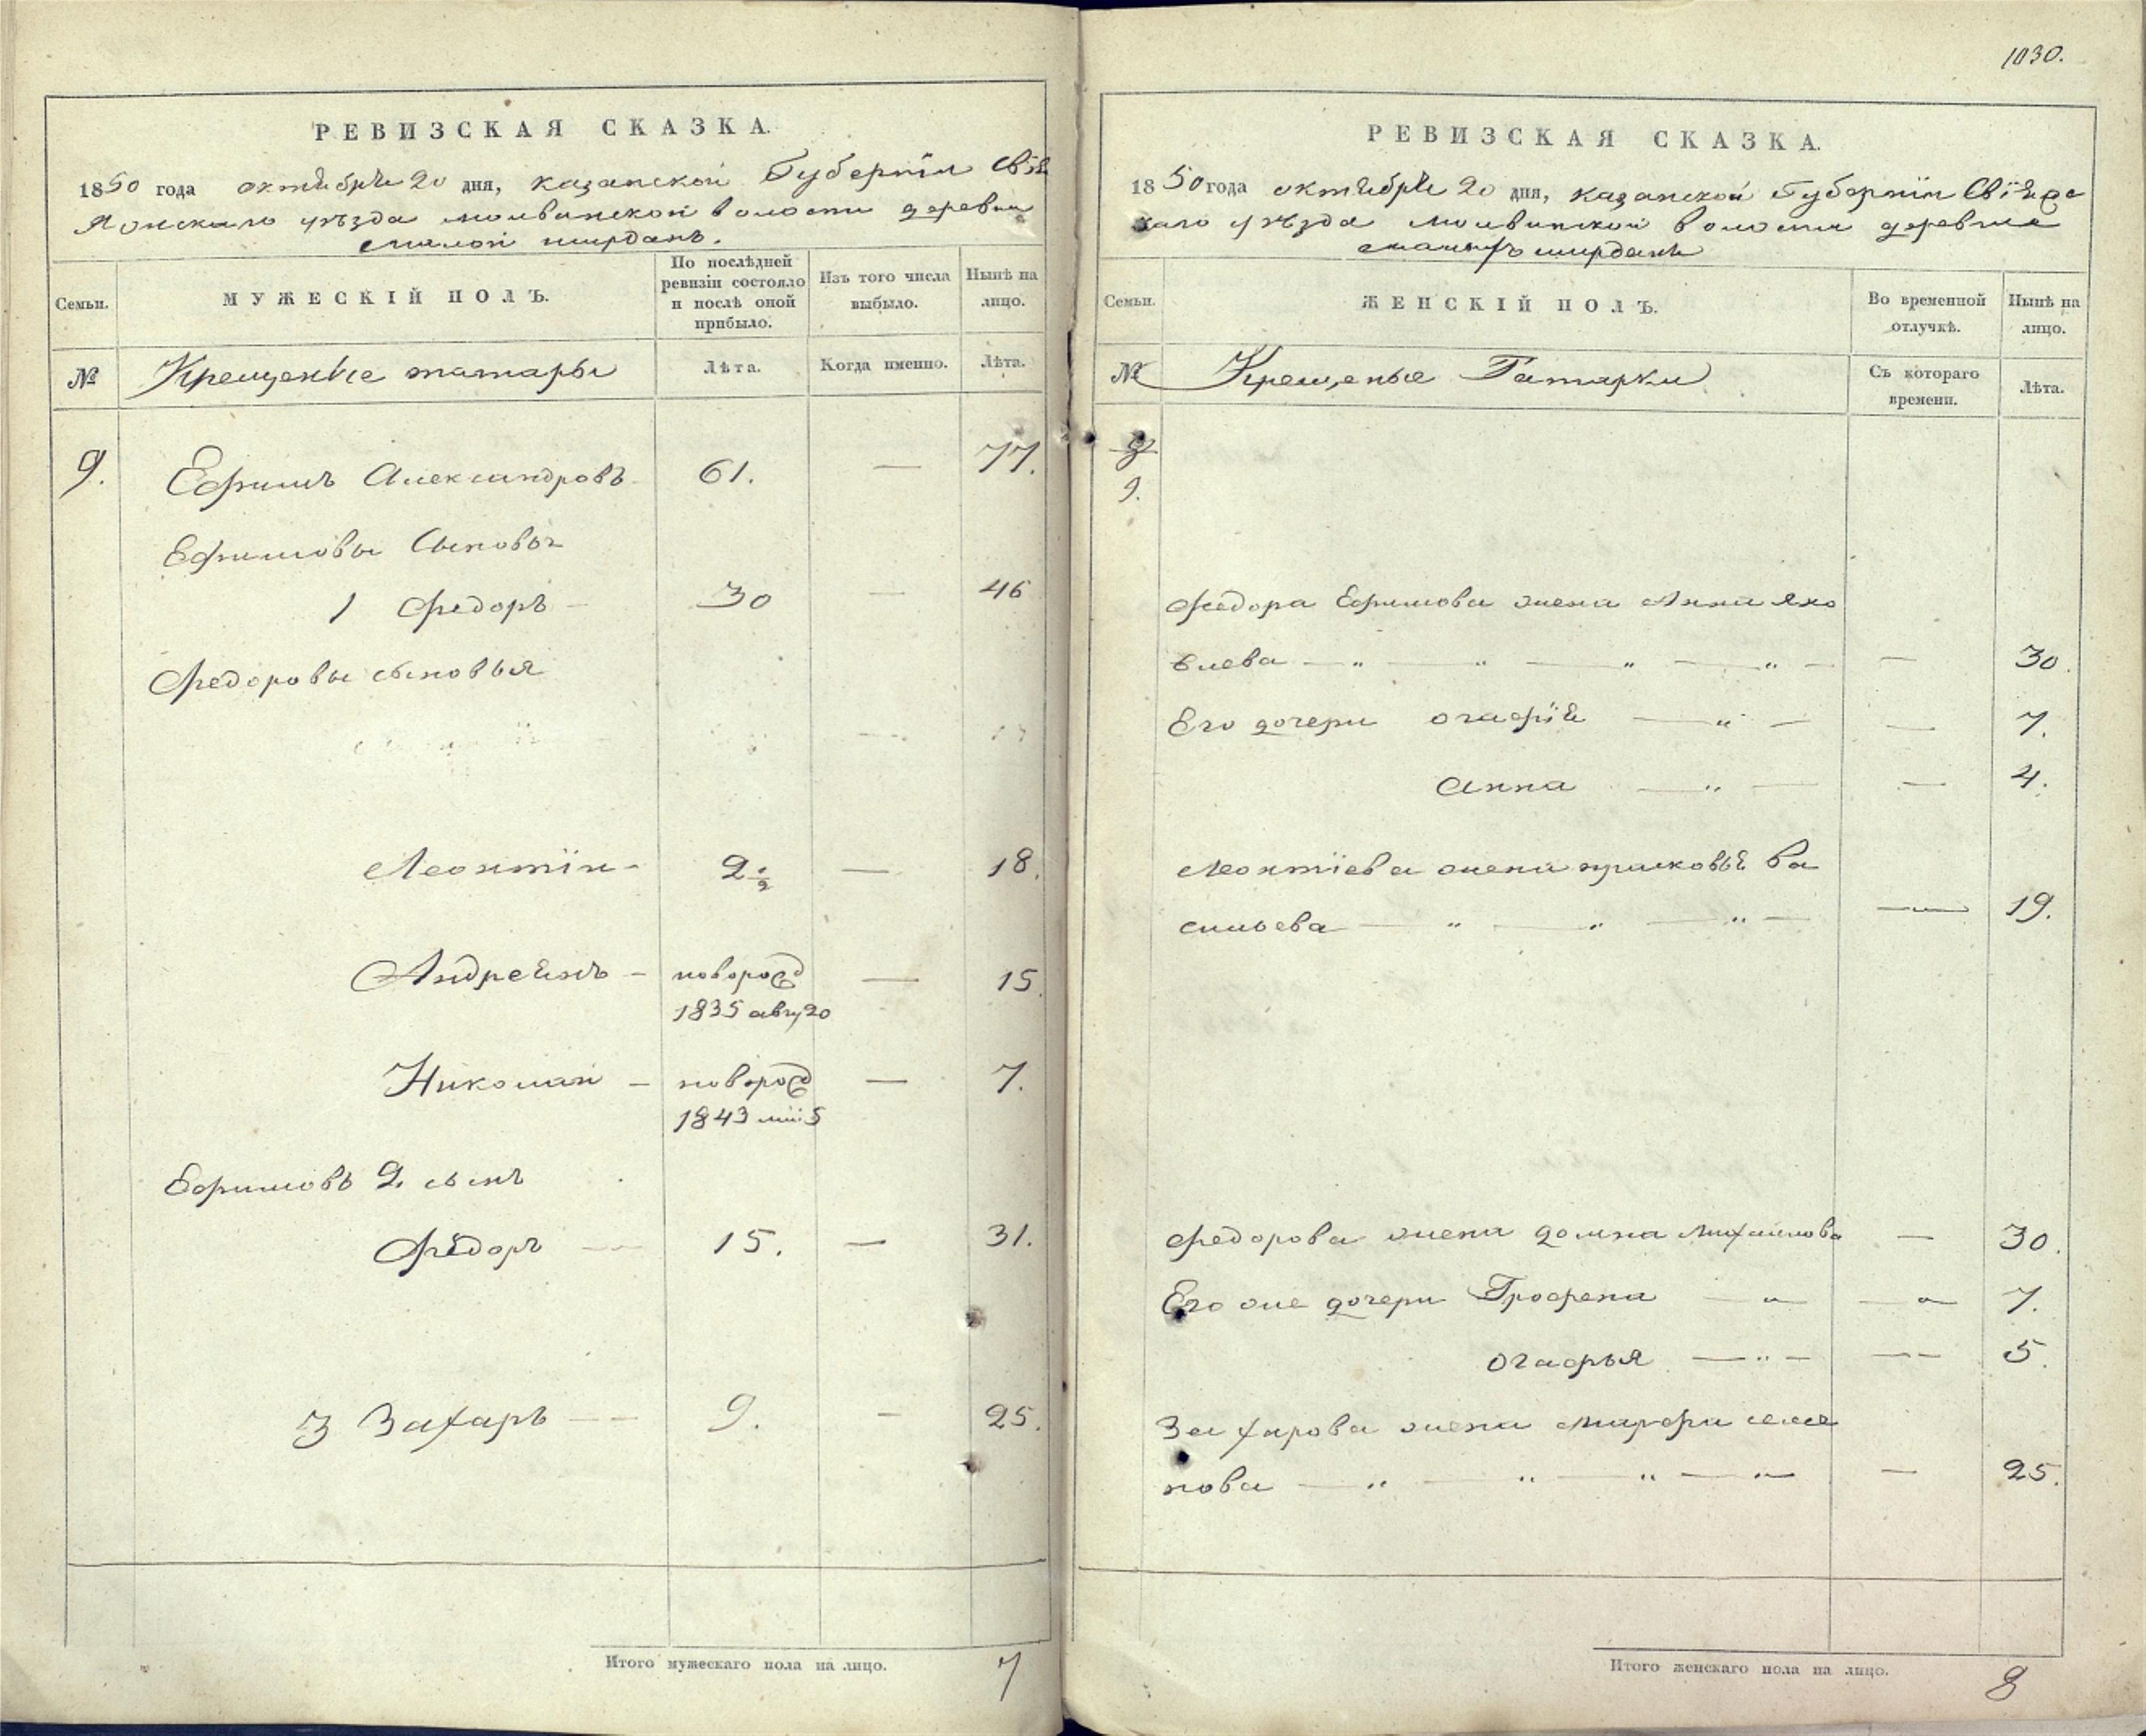 РЕВИЗСКАЯ СКАЗКА.
1850 года октября 20 дня, казанской Губернїи Свїя
уѣзда волости деревни
малой ширданъ.
Семьи.
МУЖЕСКІЙ ПОЛЪ.
По послѣдней ревизіи состояло и послѣ оной прибыло.
Изъ того числа выбыло.
Нынѣ на лицо.
№
Крещеные татары
Лѣта.
Когда именно.
Лѣта.
9. Ефимъ Александровъ 61. — 77.
Ефимовы Сыновья
1 Федоръ — 30 — 46
Федоровы сыновья
Леонтїи — 2 1/2 — 18.
Андреянъ — новород — 15.
1835 авгу 20
Николай — новород — 7.
1843 5
Ефимовъ 2. сынъ
Федоръ — 15. — 31.
3 Захаръ — 9. — 25.
Итого мужескаго пола на лицо. 7
1030.
РЕВИЗСКАЯ СКАЗКА.
1850 года октября 20 дня, казанской Губернїи Свїяж
скаго уѣзда волости деревни
малыхъ ширданъ
Семьи.
ЖЕНСКІЙ ПОЛЪ.
Во временной отлучкѣ.
Нынѣ на лицо.
№
Крещеные Татарки
Съ котораго времени.
Лѣта.
9.
Федора Ефимова жена Анна яко
влева — „ — „ — „ — „ — — 30.
Его дочери огафїя — „ — — 7.
Анна — „ — — 4.
Леонтїева жена прасковья ва
сильева — „ — „ — „ — — 19.
Федорова жена домна михаилова — 30.
Его же дочери Грофена — „ — „ — 7.
огафья — „ — — 5.
Захарова жена марфа семе
нова — „ — „ — „ — „ — 25.
Итого женскаго пола на лицо. 8